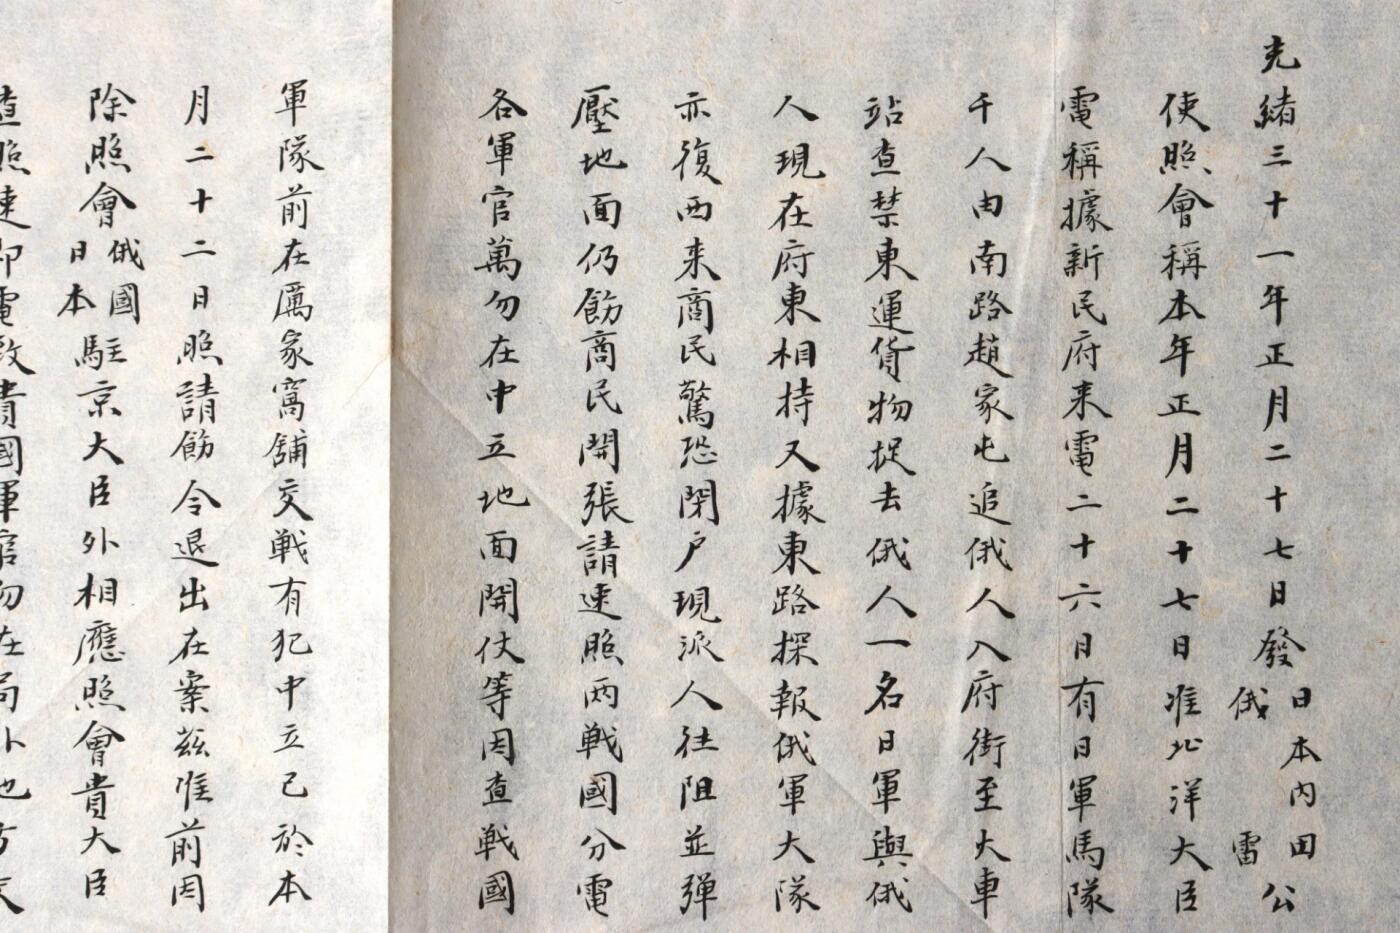 光緒三十一年正月二十七日發日本內田俄雷公
使照會稱本年正月二十七日准北洋大臣
電稱據新民府来電二十六月有日軍馬隊
千人由南路趙家屯追俄人入府街至火車
站查禁東運貨物捉去俄人一名日軍與俄
人現在府東相持又據東路探報俄軍大隊
亦復西来商民驚恐閉戶現派人往阻並彈
壓地面仍飭商民開張請速照两戰國分電
各軍官萬勿在中立地面開仗等因查戰國
軍隊前在厲家窩舖交戰有犯中立已於本
月二十二日照請飭令退出在案茲准前因
除照會俄國日本駐京大臣外相應照會貴大臣
查照速即電致貴國軍官勿在局外地方交